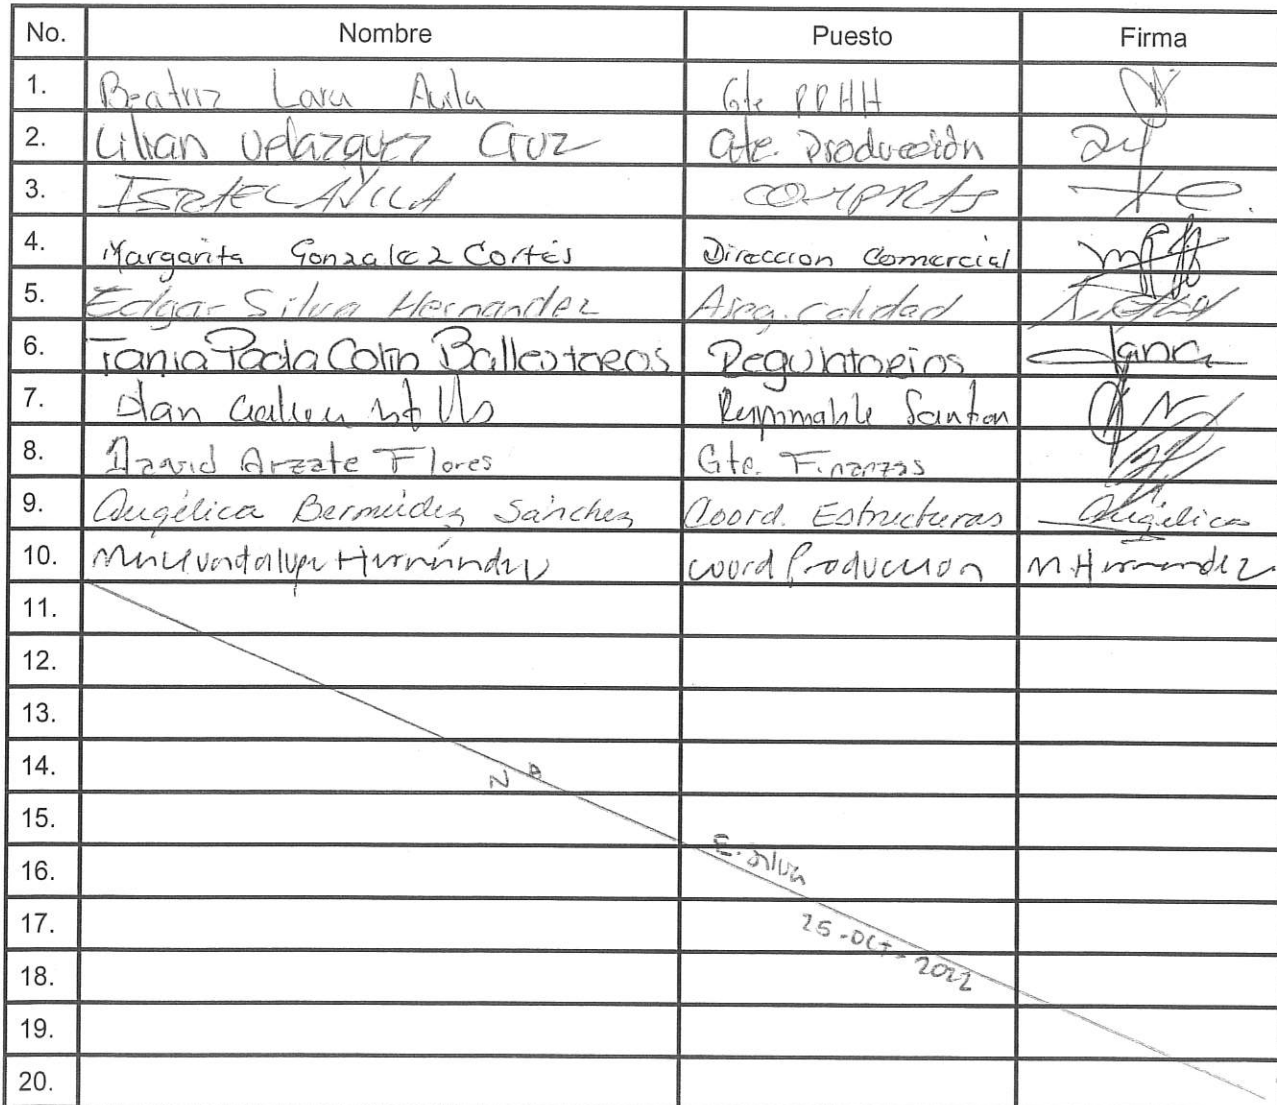 No. Nombre Puesto Firma
1. Beatriz Lara Avila Gte RRHH
2. Lilian Velazquez Cruz Gte. Producción
3. ISRAEL AVILA COMPRAS
4. Margarita Gonzalez Cortés Direccion Comercial
5. Edgar Silva Hernandez Aseg. calidad
6. Tania Paola Colin Ballesteros Regulatorios Tania
7. Responsable
8. David Arzate Flores Gte. Finanzas
9. Angélica Bermúdez Sánchez Coord. Estructuras Angélica
10. Hernández coord Produccion M. Hernandez
11.
12.
13.
14.
N A
15.
E. Silva
16.
17.
25-OCT-2022
18.
19.
20.